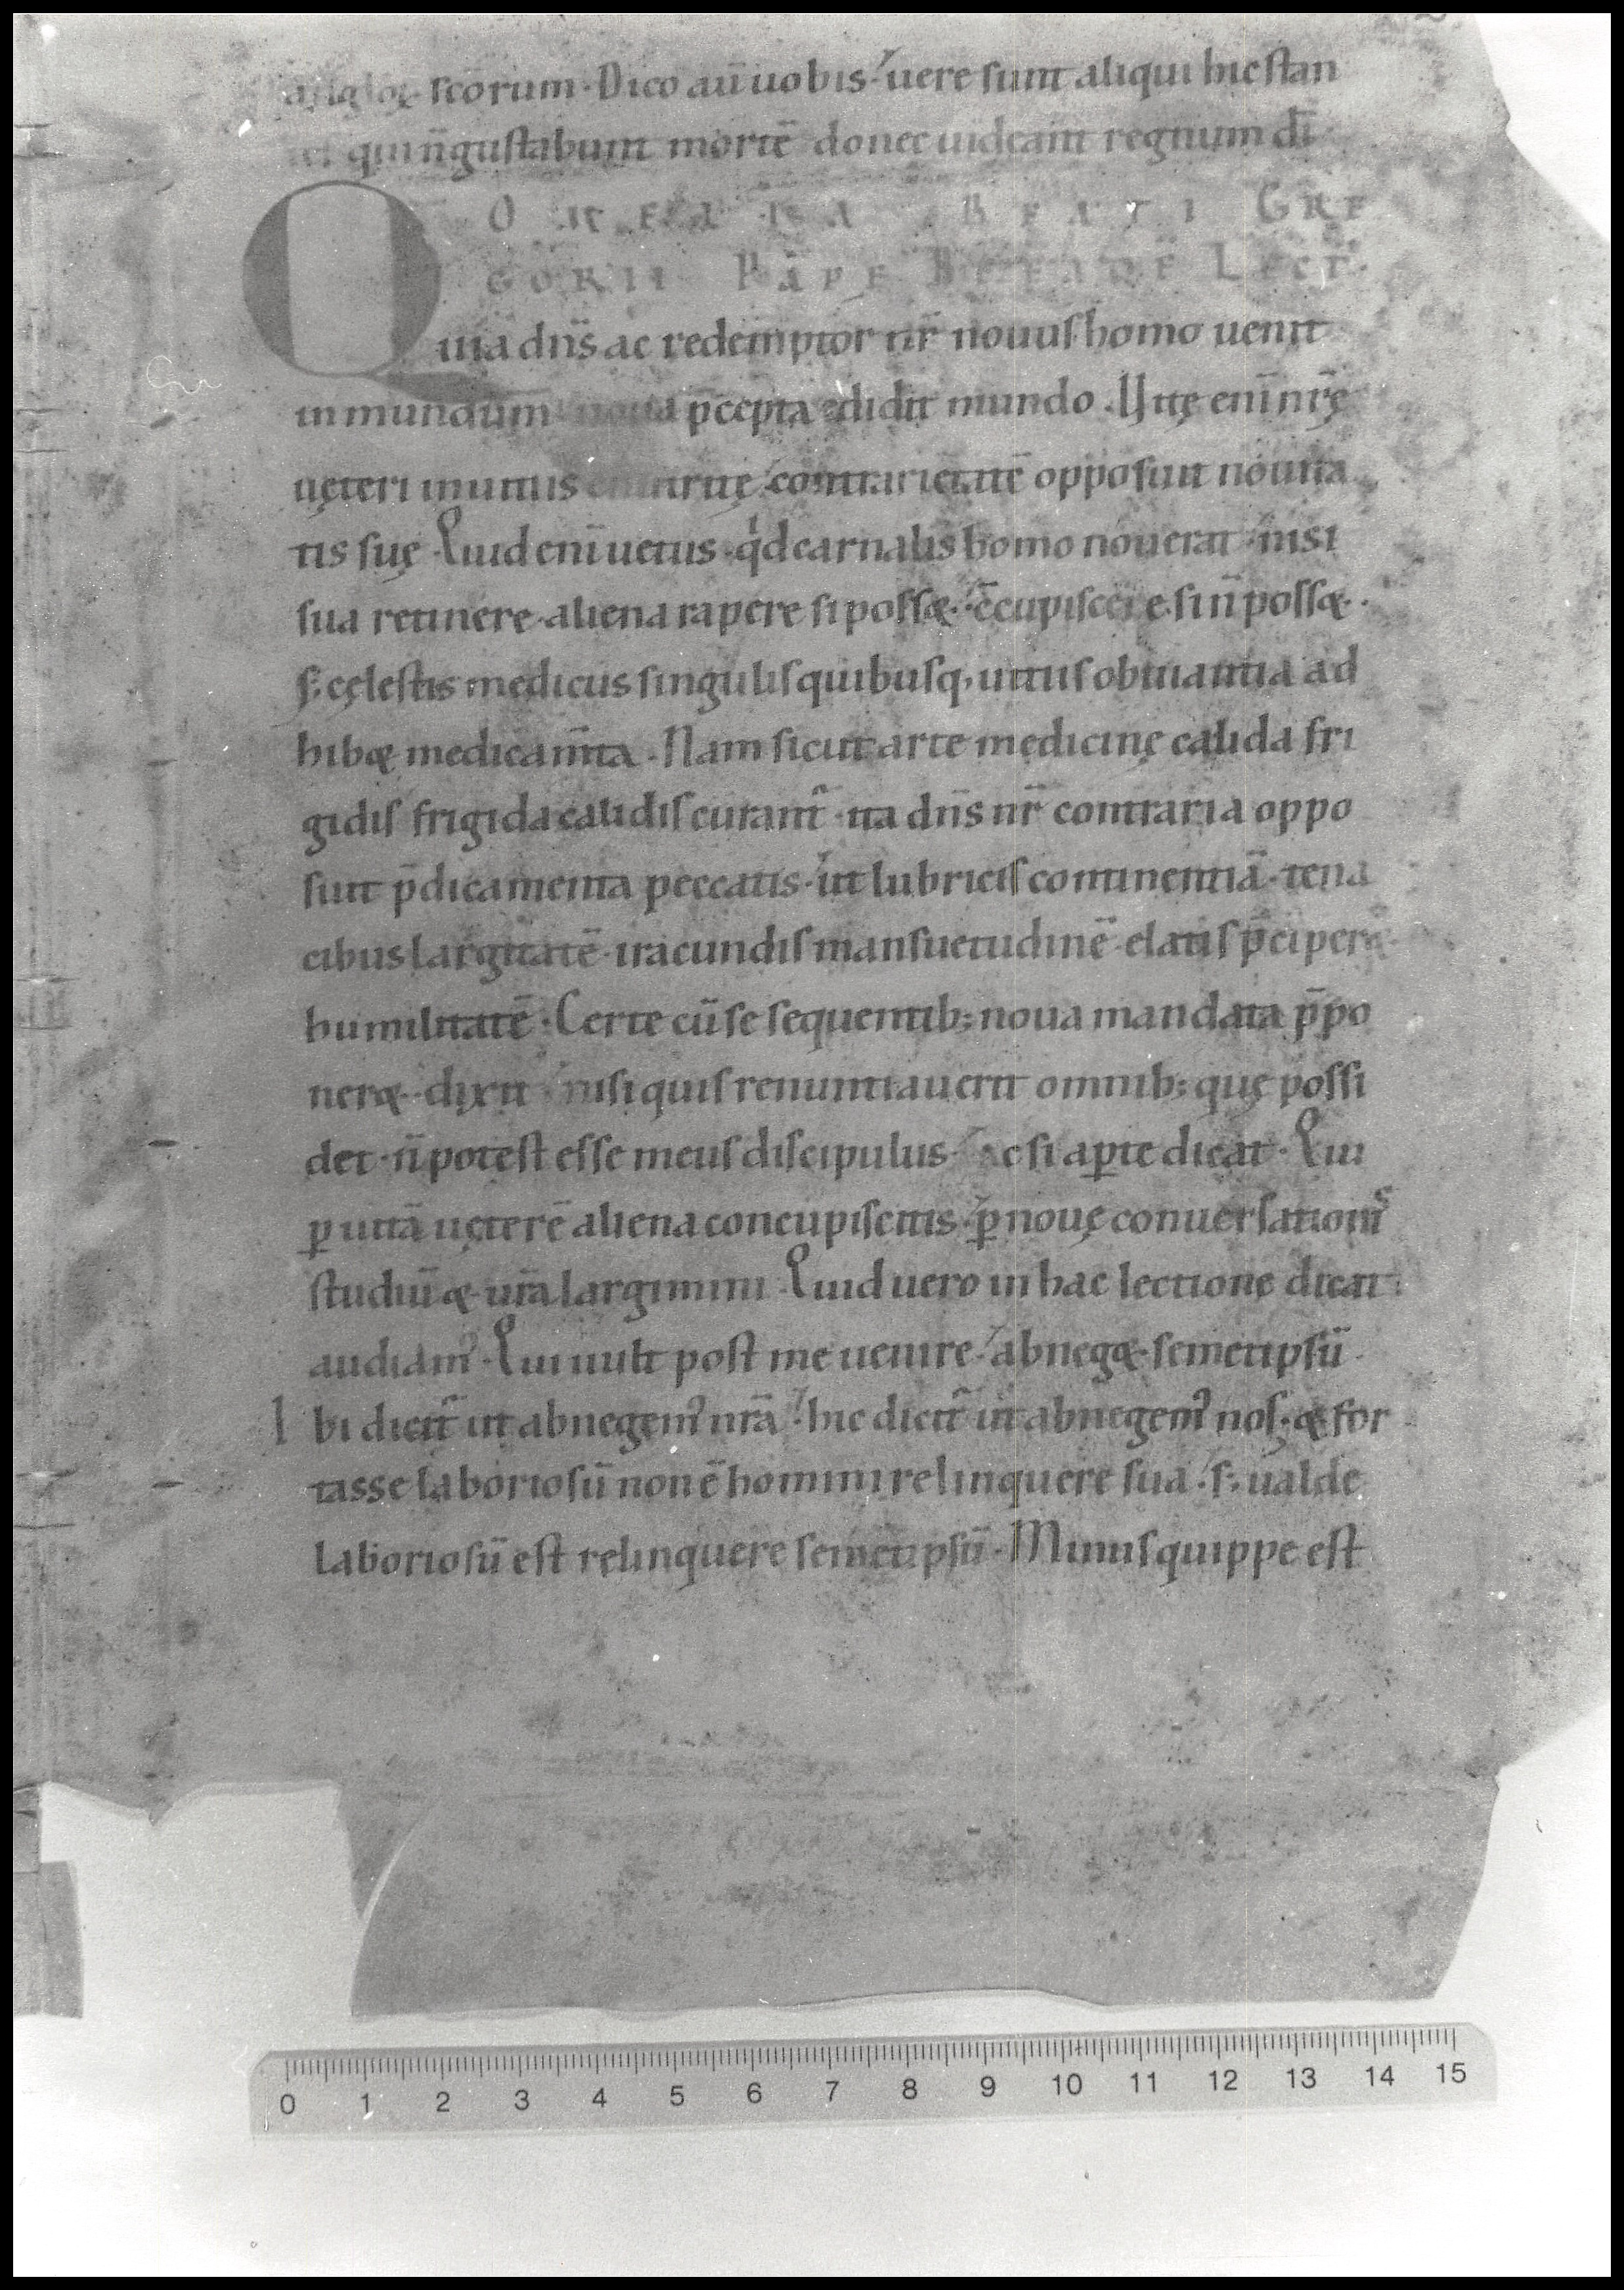 angloꝝ scōrum · Dico aū uobis · uere sunt aliqui hic stan
tes qui n̄ gustabunt mortē donec uideant regnum dī ·
OMELIA BEATI GRE
GORII PAPE DE EADE LECT ·
Quia dn̄s ac redemptor nr̄ nouus homo uenit
in mundum noua p̄cepta edidit mundo · Uitę enī nr̄ę
uęteri in uitiis enutritę contrarietatē opposuit nouita
tis suę · Quid enī uetus · qͥd carnalis homo nouerat · nisi
sua retinere · aliena rapere si possæ · c̄cupiscere si n̄ possæ ·
s; cęlestis medicus singulis quibusq; uitiis obuiantia ad
hibæ medicam̄ta · Nam sicut arte medicinę calida fri
gidis frigida calidis curant᷑ · ita dn̄s nr̄ contraria oppo
suit p̄dicamenta peccatis · ut lubricis continentiā · tena
cibus largitatē · iracundis mansuetudinē · elatis p̄ciperæ
humilitatē · Certe cū se sequentib; noua mandata p̄po
neræ · dixit · nisi quis renuntiauerit omnib; quę possi
det · n̄ potest esse meus discipulus · Ac si aꝑte dicat · Qui
ꝑ uitā uęterē aliena concupiscitis · ꝑ nouę conuersationis
studiū æ ur̄a largimini · Quid uero in hac lectione dicat ·
audiamꝰ · Qui uult post me uenire · abnegæ semetipsū ·
Ibi dicit᷑ ut abnegemꝰ nr̄a · hic dicit᷑ ut abnegemꝰ nos · æ for
tasse laboriosū non ē homini relinquere sua · s; ualde
laboriosū est relinquere semetipsū · Minus quippe est
0 1 2 3 4 5 6 7 8 9 10 11 12 13 14 15